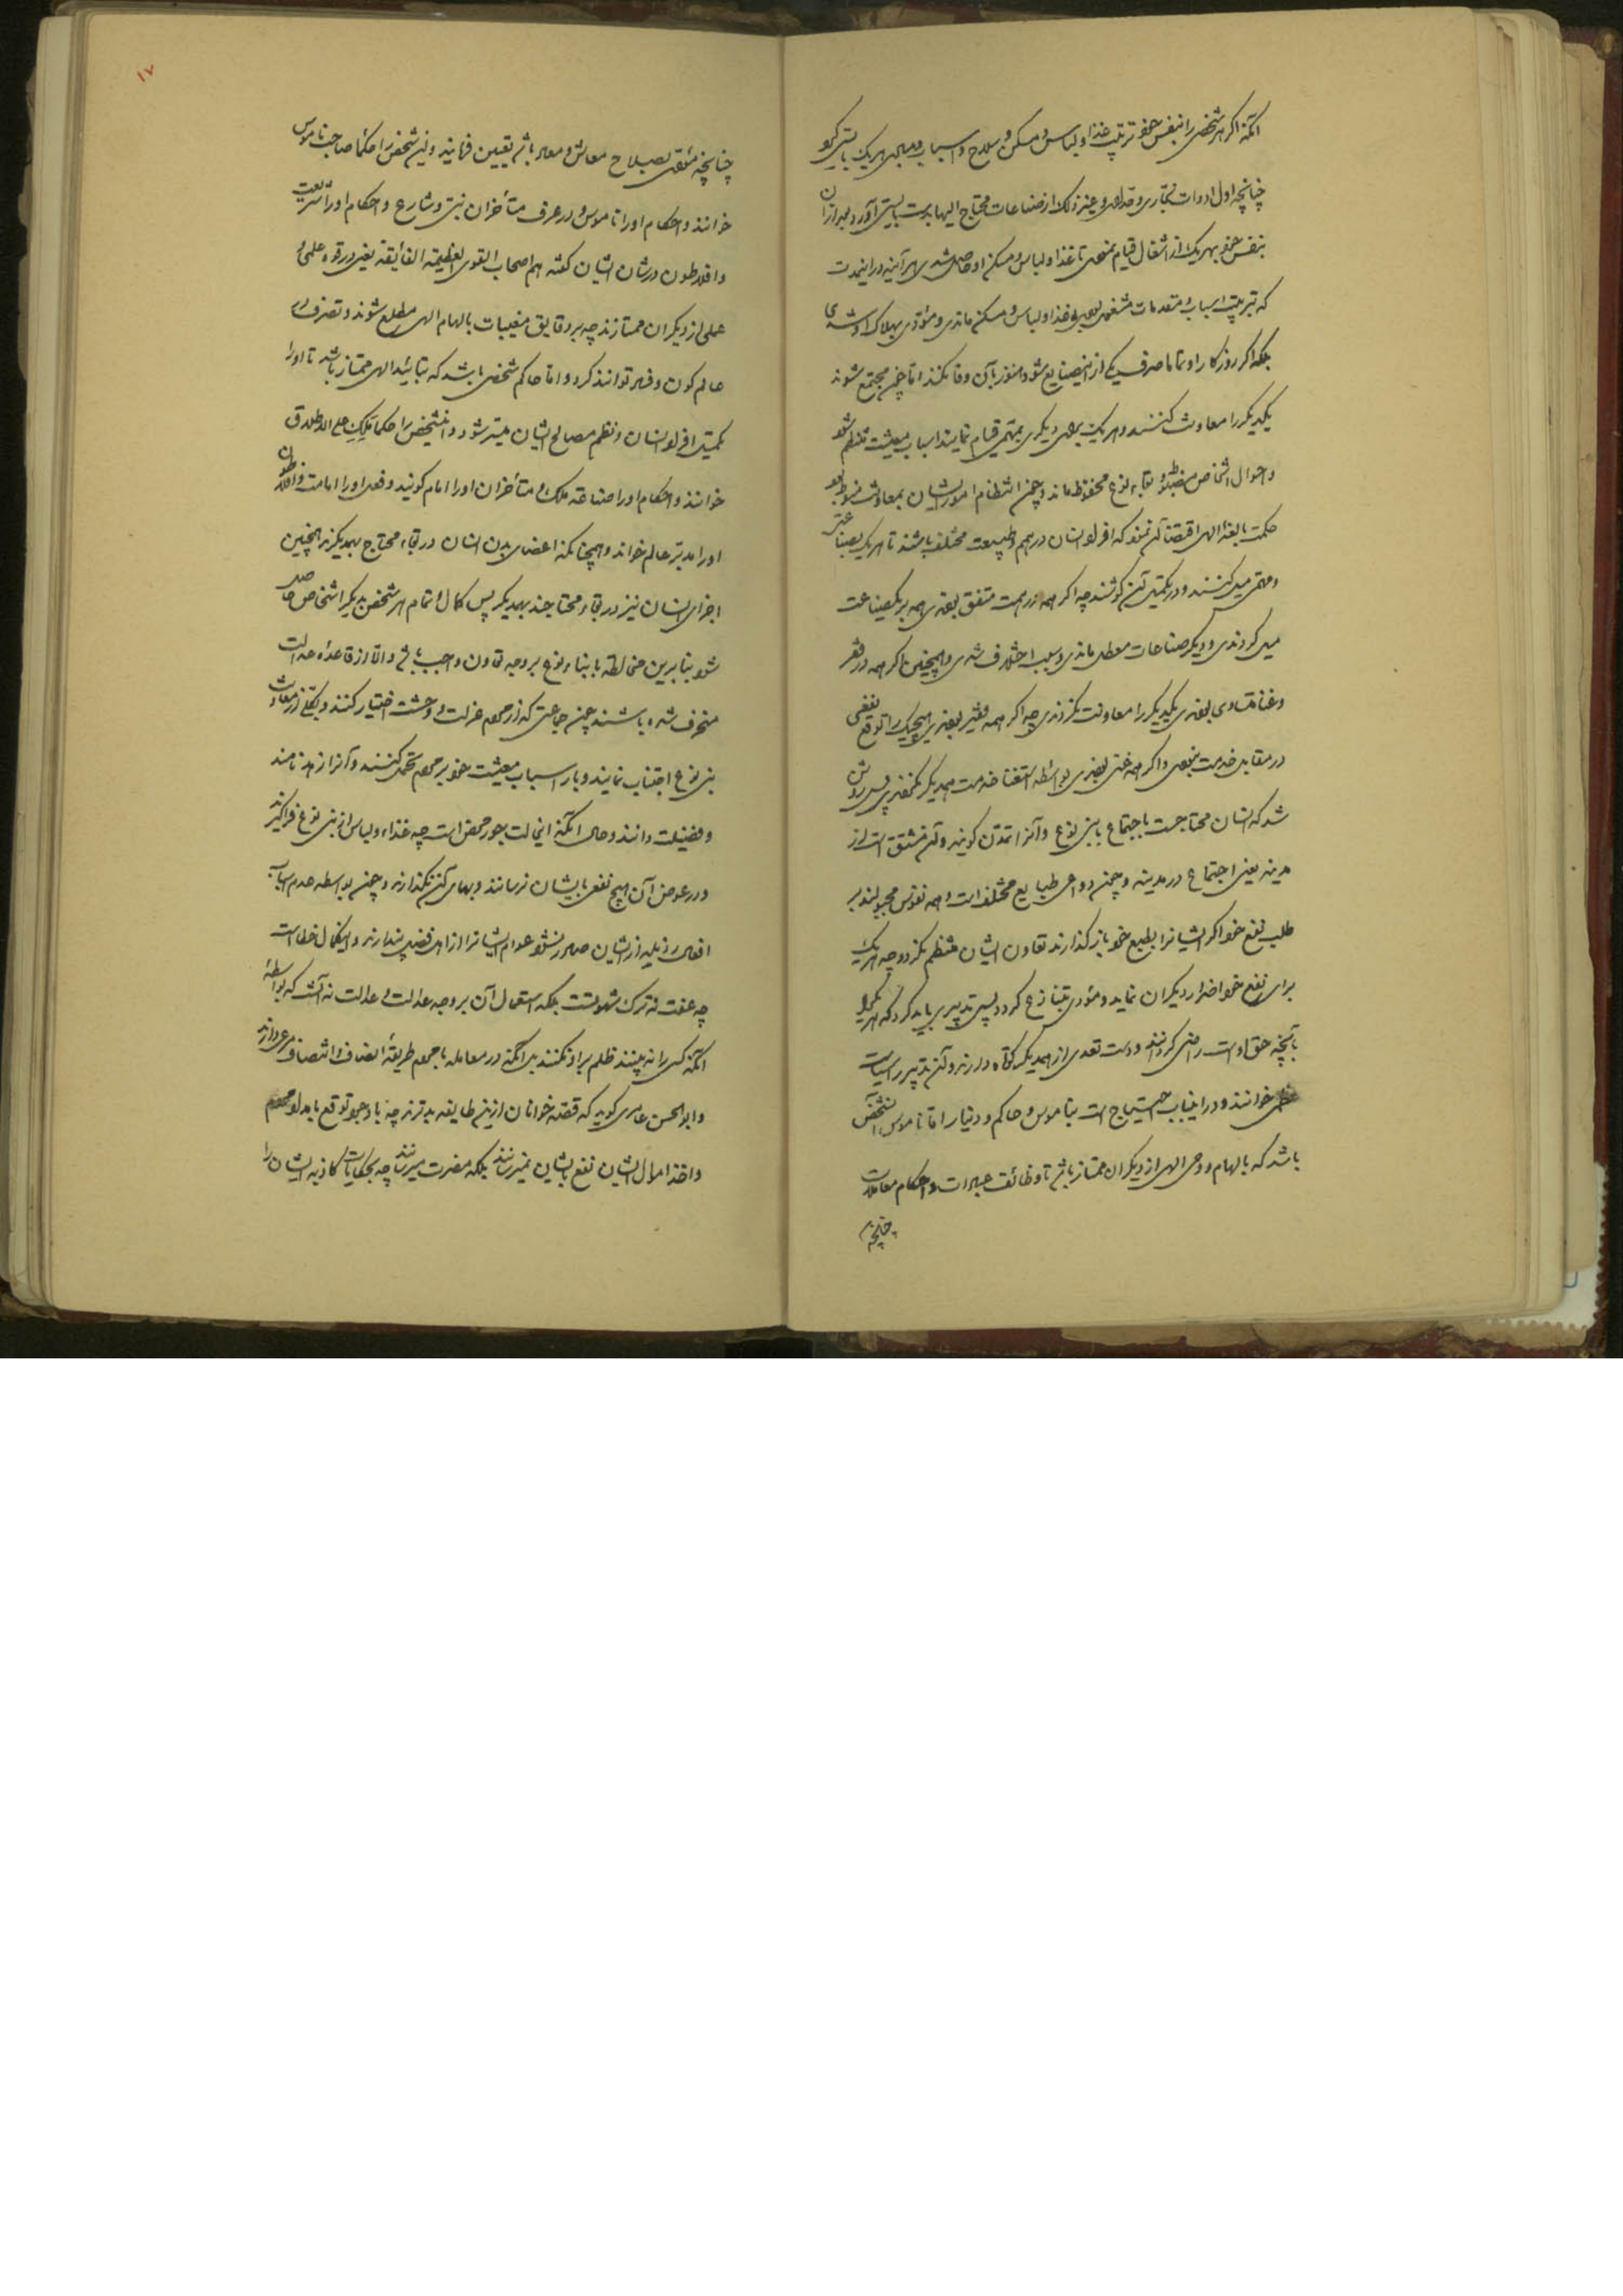 آنکه اگر هر شخصی را بنفس خود ترتیب غذا و لباس و مسکن و سلاح و اسباب و مبادی هر یک بایستی کرد
چنانچه اول ادوات نجاری و حدادی و غیر ذلک از صناعات محتاج الیها بدست بایستی آورد و بعد از ان
بنفس خود بهر یک از اشغال قیام نمودی تا غذا و لباس و مسکن او حاصل شدی هر آینه در اینمدت
که بترتیب اسباب و مقدمات مشغول بودی بی غذا و لباس و مسکن ماندی و مؤدی بهلاک او شدی
بلکه اگر روزکار او تماما صرف یکی از این صنایع شود هنوز بآن وفا نکند اما چون مجتمع شوند
یکدیکر را معاونت کنند و هر یک برای دیکری بمهمی قیام نمایند اسباب معیشت منتظم شود
و احوال اشخاص مضبوط و بقاء نوع محفوظ ماند و چون انتظام امور ایشان بمعاونت منوط بود
حکمت بالغه الهی اقتضاء آن نمود که افراد انسان در همم و طبیعت مختلف باشند تا هر یک بصناعتی
میل کنند و در تکمیل آن کوشند چه اکر همه در همت متفق بودندی همه بر یک صناعت
میل کردندی و دیکر صناعات معطل ماندی و سبب اختلاف شدی و همچنین اکر همه در فقر
و غنا متساوی بودندی یکدیکر را معاونت نکردندی چه اکر همه فقیر بودندی هیچیک را توقع نفعی
در مقابل خدمت نبودی و اکر همه غنی بودندی بواسطه استغنا خدمت همدیکر نکردندی پس روشن
شد که انسان محتاجست باجتماع با بنی نوع و آنرا تمدن کویند و آن مشتق است از
مدینه یعنی اجتماع در مدینه و چون دواعی طبایع مختلف است و همه نفوس مجبولند بر
طلب نفع خود اکر ایشانرا بطبع خود باز کذارند تعاون ایشان منتظم نکردد چه هر یک
برای نفع خود اضرار دیکران نماید و مؤدی بتنازع کردد پس تدبیری باید کرد که هر یک را
بآنچه حق اوست راضی کردانند و دست تعدی از همدیکر کوتاه دارند و آن تدبیر را سیاست
عظمی خوانند و در اینباب احتیاج است بناموس و حاکم و دینار اما ناموس آنشخص
باشد که بالهام و وحی الهی از دیکران ممتاز باشد تا وظائف عبادات و احکام معاملات
چنانچه
۱۷
چنانچه مؤدی بصلاح معاش و معاد باشد تعیین فرماید و این شخص را حکما صاحب ناموس
خوانند و احکام او را ناموس و در عرف متأخران نبی و شارع و احکام او را شریعت
و افلاطون در شان ایشان کفته هم اصحاب القوی العظیمة الفائقة یعنی در قوه علمی و
عملی از دیکران ممتازند چه بر دقایق مغیبات بالهام الهی مطلع شوند و تصرف در
عالم کون و فساد توانند کرد و اما حاکم شخصی باشد که بتائید الهی ممتاز باشد تا او را
تکمیل افراد انسان و نظم مصالح ایشان میسر شود و اینشخص را حکما ملک علی الاطلاق
خوانند و احکام او را صناعة ملک و متأخران او را امام کویند و فعل او را امامت و افلاطون
او را مدبر عالم خواند و همچنانکه اعضای بدن انسان در بقاء محتاج بهمدیکرند همچنین
اجزای انسان نیز در بقاء محتاجند بهمدیکر پس کمال و تمام هر شخص بدیکر اشخاص حاصل
شود بنابرین مخالطه با ابناء نوع بر وجه تعاون واجب باشد و الا از قاعده عدالت
منحرف شده باشند چون جماعتی که از مردم عزلت و وحشت اختیار کنند و بکلی از معاونت
بنی نوع اجتناب نمایند و بار اسباب معیشت خود بر مردم تحمیل کنند و آنرا زهد نامند
و فضیلت دانند و حال آنکه اینحالت جور محض است چه غذا و لباس از بنی نوع فراکیرند
و در عوض آن هیچ نفعی بایشان نرسانند و بهای آن نکذارند و چون بواسطه عدم اسباب
افعال رذیله از ایشان صادر نشود عوام ایشانرا از اهل فضیلت پندارند و اینکمال خطا است
چه عفت نه ترک شهوتست بلکه استعمال آن بر وجه عدالت و عدالت نه آنست که بواسطه
آنکه کسی را نه بینند ظلم بر او نکنند بل آنکه در معامله با مردم طریقه انصاف و انتصاف مرعی دارند
و ابو الحسن عامری کوید که قصه خوانان ازین طایفه بدترند چه با وجود توقع بامداد مردم
و اخذ اموال ایشان نفع بایشان نمیرسانند بلکه مضرت میرسانند چه بحکایات کاذبه ایشان را